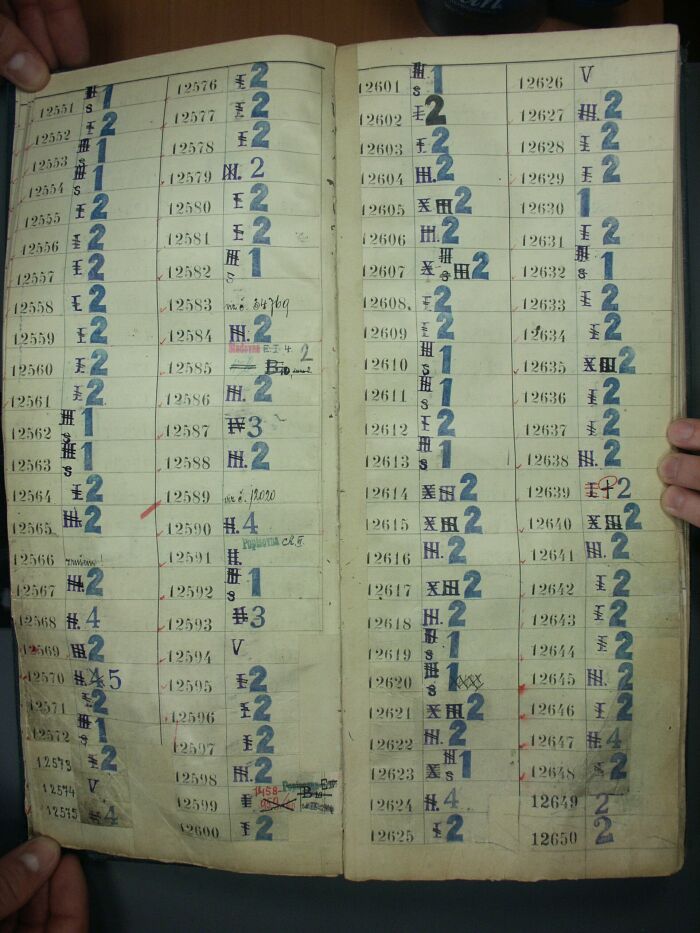 12551 III s 1
12552 I 2
12553 III s 1
12554 III s 1
12555 I 2
12556 I 2
12557 I 2
12558 I 2
12559 I 2
12560 I 2
12561 I 2
12562 III s 1
12563 III s 1
12564 I 2
12565 III. 2
12566
12567 III. 2
12568 II. 4
12569 III 2
12570 II. 4 5
12571 I 2
12572 III s 1
12573 I 2
12574 V
12575 4
12576 I 2
12577 I 2
12578 I 2
12579 III. 2
12580 I 2
12581 I 2
12582 III s 1
12583 viz č. 34769
12584 III. 2
12585 E. I. 4. 2
12586 III. 2
12587 IV 3
12588 III. 2
12589 viz č. 12020
12590 II. 4
12591 II. Popisovna
12592 III s 1
12593 II 3
12594 V
12595 I 2
12596 I 2
12597 I 2
12598 III. 2
12599 1458
12600 I 2
12601 III s 1
12602 I 2
12603 I 2
12604 III. 2
12605 X III 2
12606 III. 2
12607 X III s III 2
12608. I 2
12609 I 2
12610 III s 1
12611 III s 1
12612 I 2
12613 III s 1
12614 X III 2
12615 X III 2
12616 III. 2
12617 X III 2
12618 III. 2
12619 III s 1
12620 III s 1 XXX
12621 X III 2
12622 III. 2
12623 X III s 1
12624 II. 4
12625 I 2
12626 V
12627 III. 2
12628 I 2
12629 I 2
12630 1
12631 I 2
12632 III s 1
12633 I 2
12634 I 2
12635 X III 2
12636 I 2
12637 I 2
12638 III. 2
12639 I P 2
12640 X III 2
12641 III. 2
12642 I 2
12643 I 2
12644 I 2
12645 III. 2
12646 I 2
12647 II. 4
12648 I 2
12649 2
12650 2